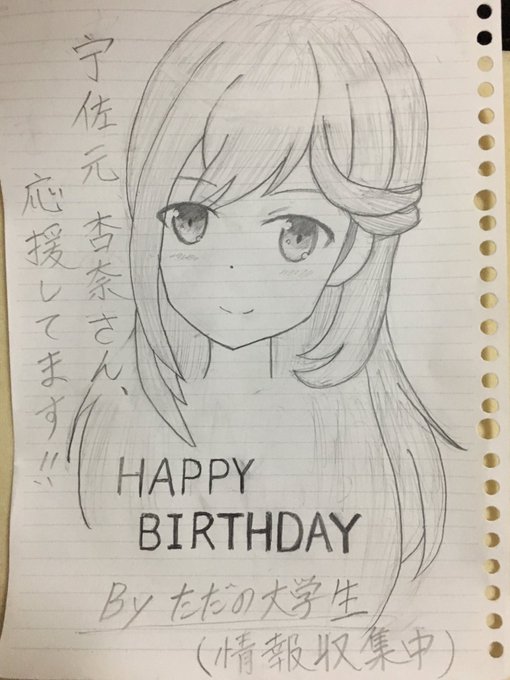 宇佐元 杏奈さん、
応援してます!!
HAPPY
BIRTHDAY
By ただの大学生
(情報収集中)